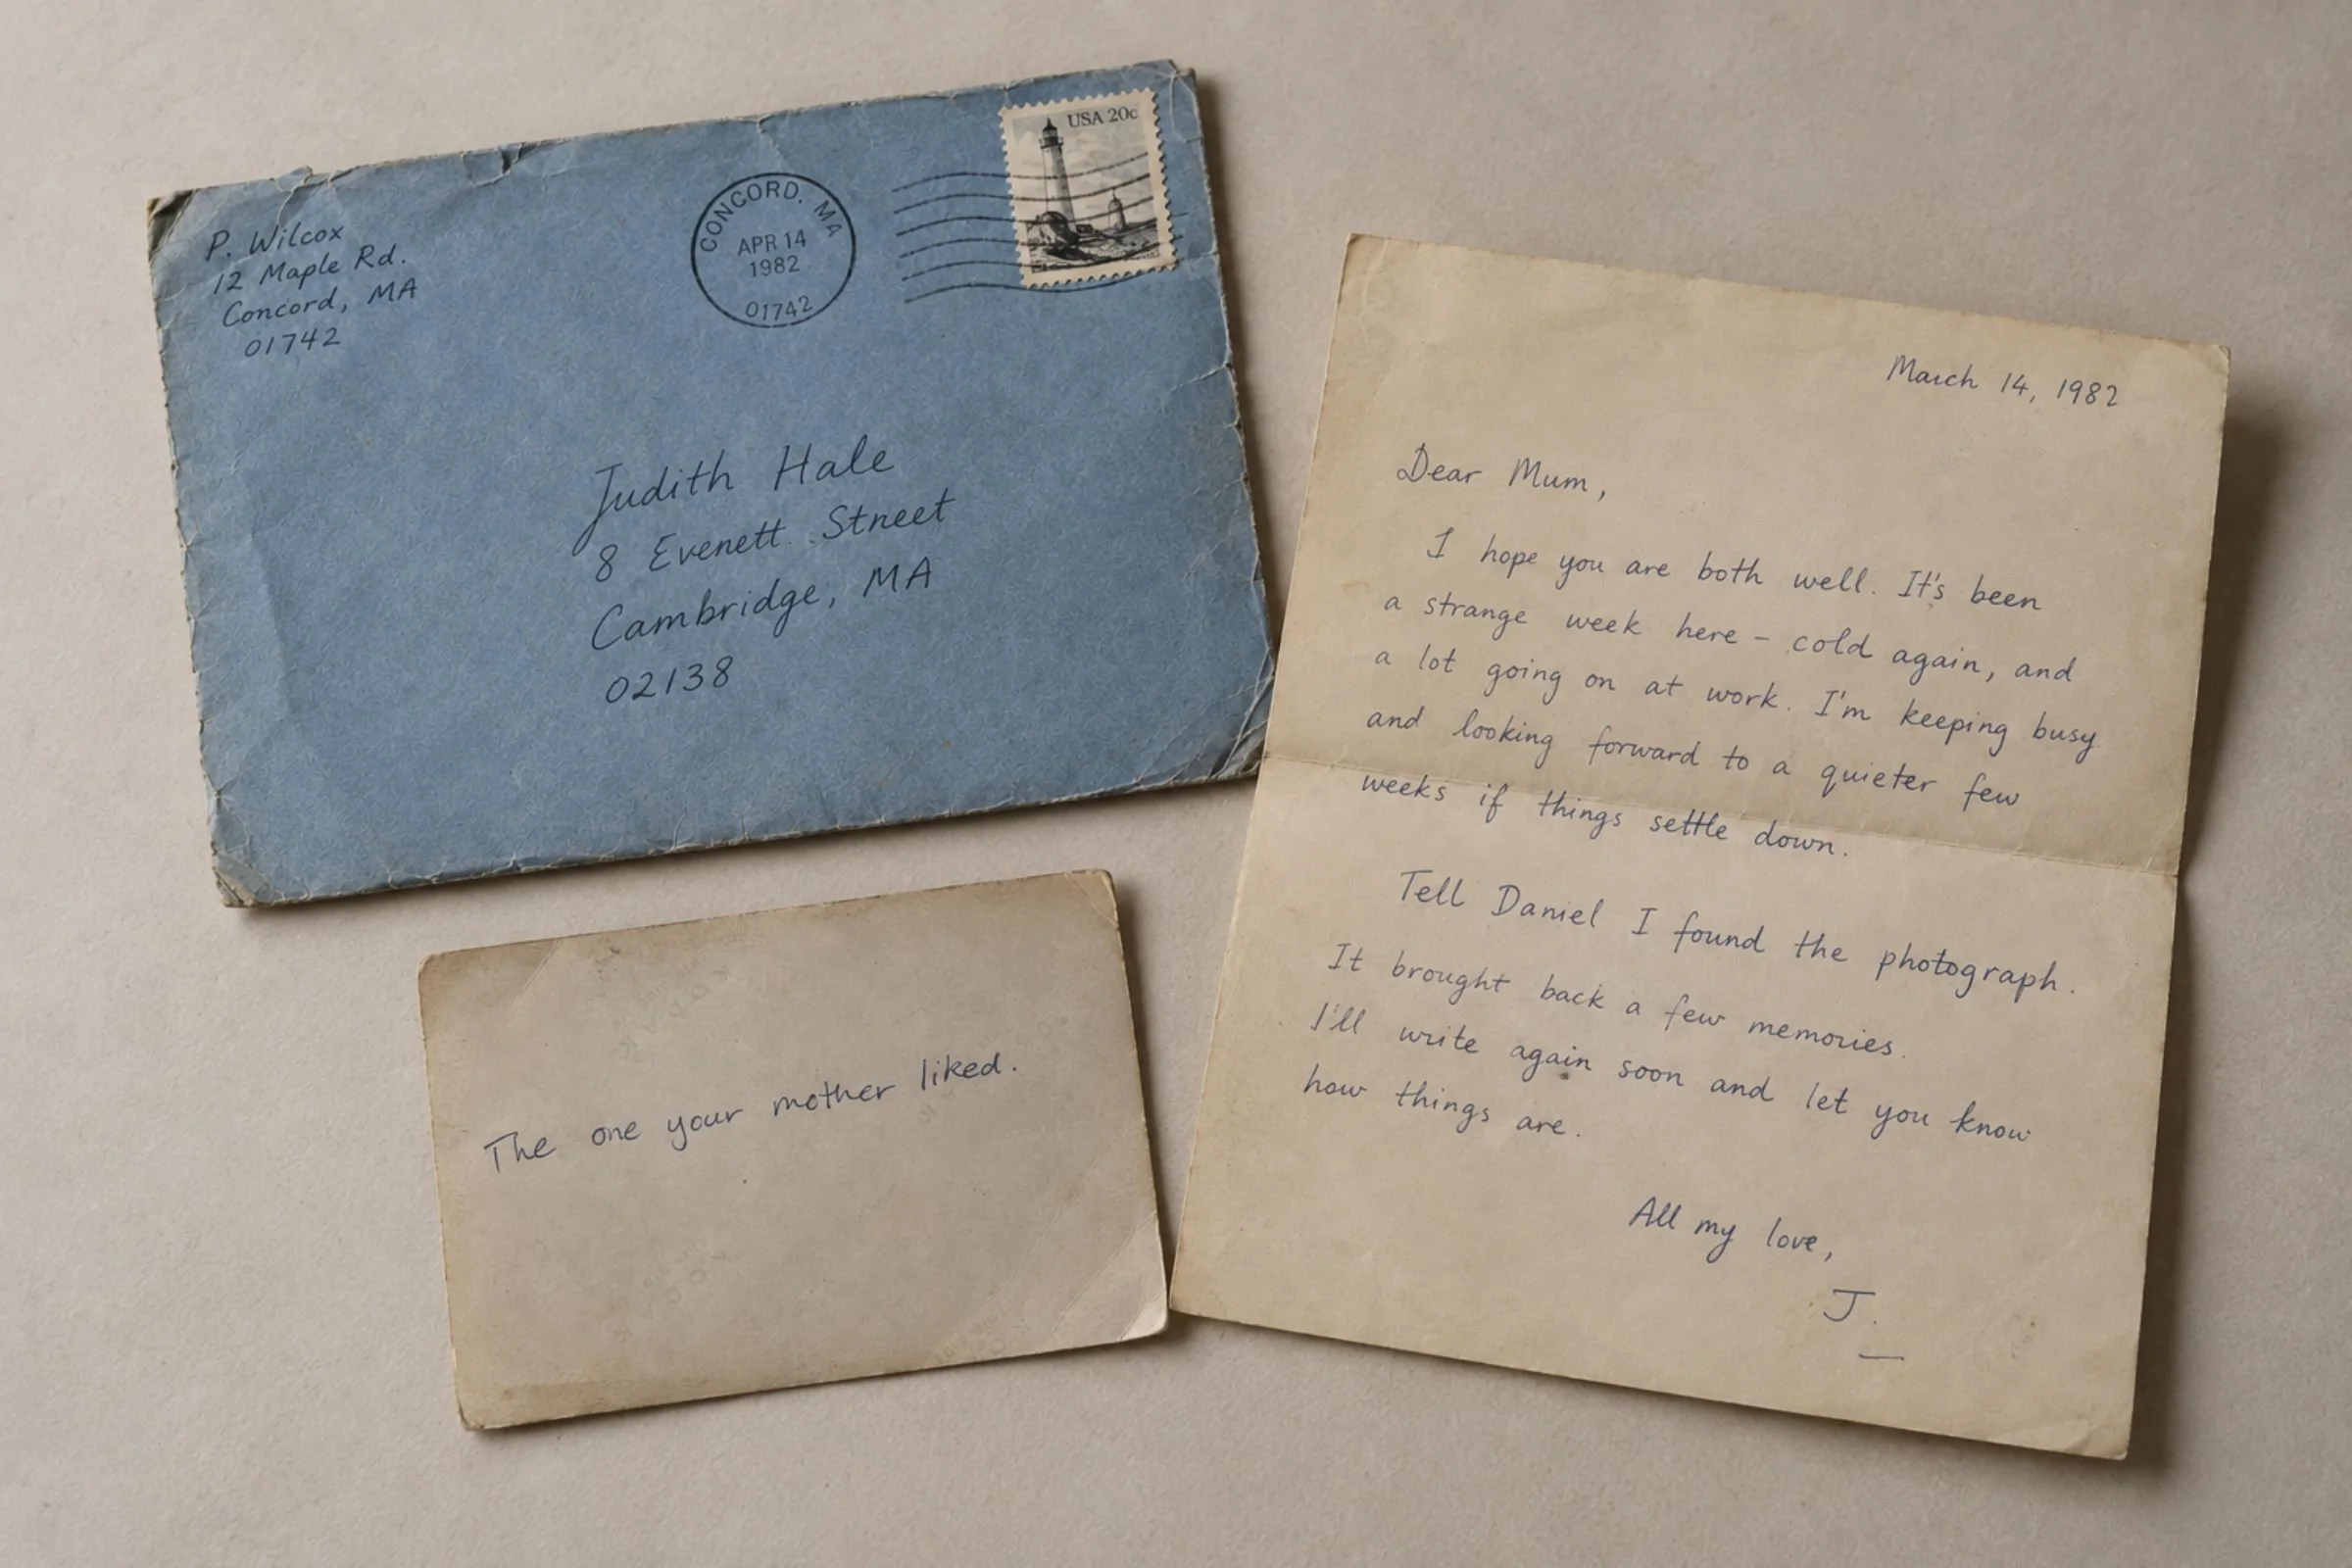 P. Wilcox
12 Maple Rd.
Concord, MA
01742
CONCORD, MA
APR 14
1982
01742
USA 20c
Judith Hale
8 Everett Street
Cambridge, MA
02138
The one your mother liked.
March 14, 1982
Dear Mum,
I hope you are both well. It's been
a strange week here – cold again, and
a lot going on at work. I'm keeping busy
and looking forward to a quieter few
weeks if things settle down.
Tell Daniel I found the photograph.
It brought back a few memories.
I'll write again soon and let you know
how things are.
All my love,
J.